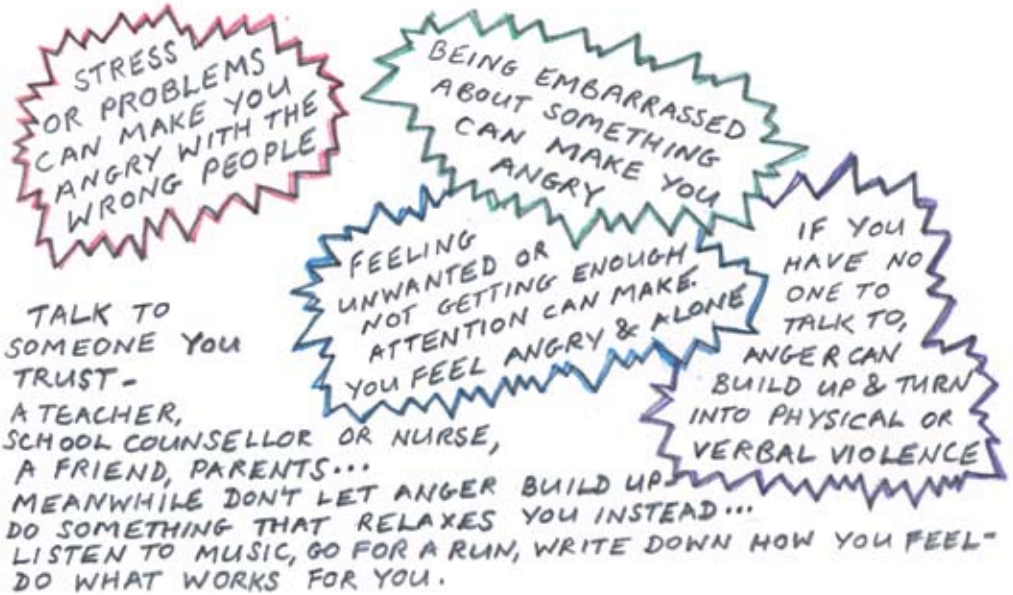 STRESS
OR PROBLEMS
CAN MAKE YOU
ANGRY WITH THE
WRONG PEOPLE
BEING EMBARRASSED
ABOUT SOMETHING
CAN MAKE YOU
ANGRY
FEELING
UNWANTED OR
NOT GETTING ENOUGH
ATTENTION CAN MAKE
YOU FEEL ANGRY & ALONE
IF YOU
HAVE NO
ONE TO
TALK TO,
ANGER CAN
BUILD UP & TURN
INTO PHYSICAL OR
VERBAL VIOLENCE
TALK TO
SOMEONE YOU
TRUST-
A TEACHER,
SCHOOL COUNSELLOR OR NURSE,
A FRIEND, PARENTS...
MEANWHILE DON'T LET ANGER BUILD UP-
DO SOMETHING THAT RELAXES YOU INSTEAD...
LISTEN TO MUSIC, GO FOR A RUN, WRITE DOWN HOW YOU FEEL-
DO WHAT WORKS FOR YOU.